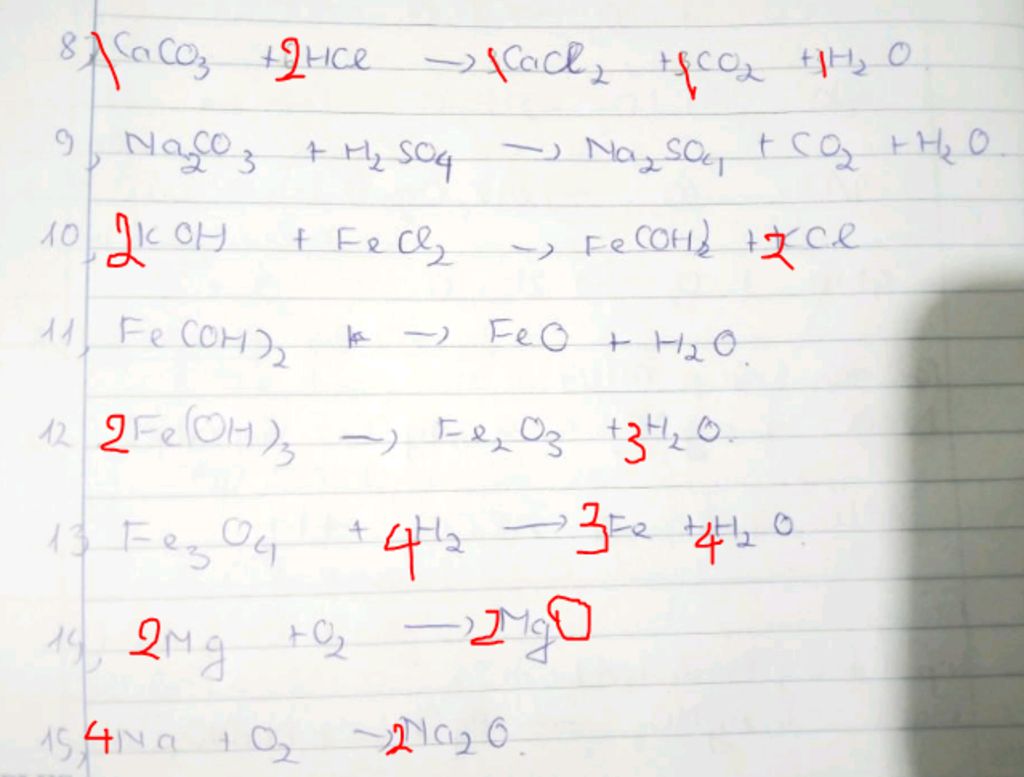 8, 1CaCO3 + 2HCl → 1CaCl2 + 1CO2 + 1H2O.
9, Na2CO3 + H2SO4 → Na2SO4 + CO2 + H2O.
10, 2KOH + FeCl2 → Fe(OH)2 + 2KCl
11, Fe(OH)2 → FeO + H2O.
12 2Fe(OH)3 → Fe2O3 + 3H2O.
13, Fe3O4 + 4H2 → 3Fe + 4H2O.
14, 2Mg + O2 → 2MgO
15, 4Na + O2 → 2Na2O.